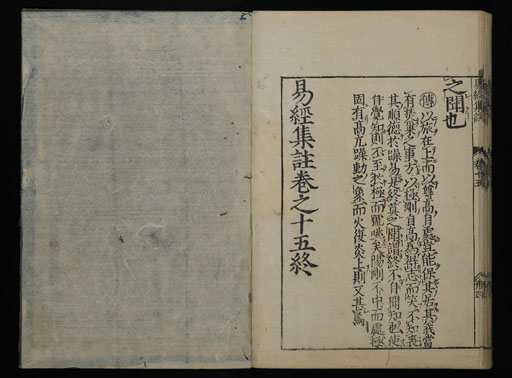 之聞也
傳以旅在上而以尊高自處豈能保其居其義當
有焚巢之事方以極剛自高為得志而笑不知喪
其順德於躁易是終莫之聞謂終不自聞知也使
自覺知則不至於極而號咷矣陽剛不中而處極
固有高亢躁動之象而火復炎上則又甚焉
易經集註卷之十五終